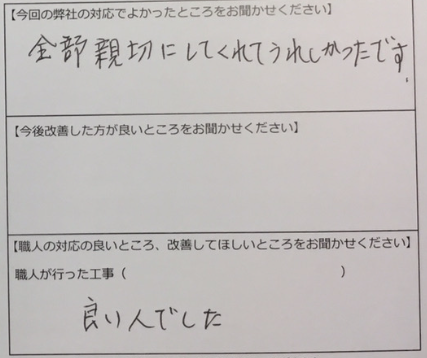 【今回の弊社の対応でよかったところをお聞かせください】
全部親切にしてくれてうれしかったです.
【今後改善した方が良いところをお聞かせください】
【職人の対応の良いところ、改善してほしいところをお聞かせください】
職人が行った工事（　　　　　　　　　　　　　　　　）
良い人でした